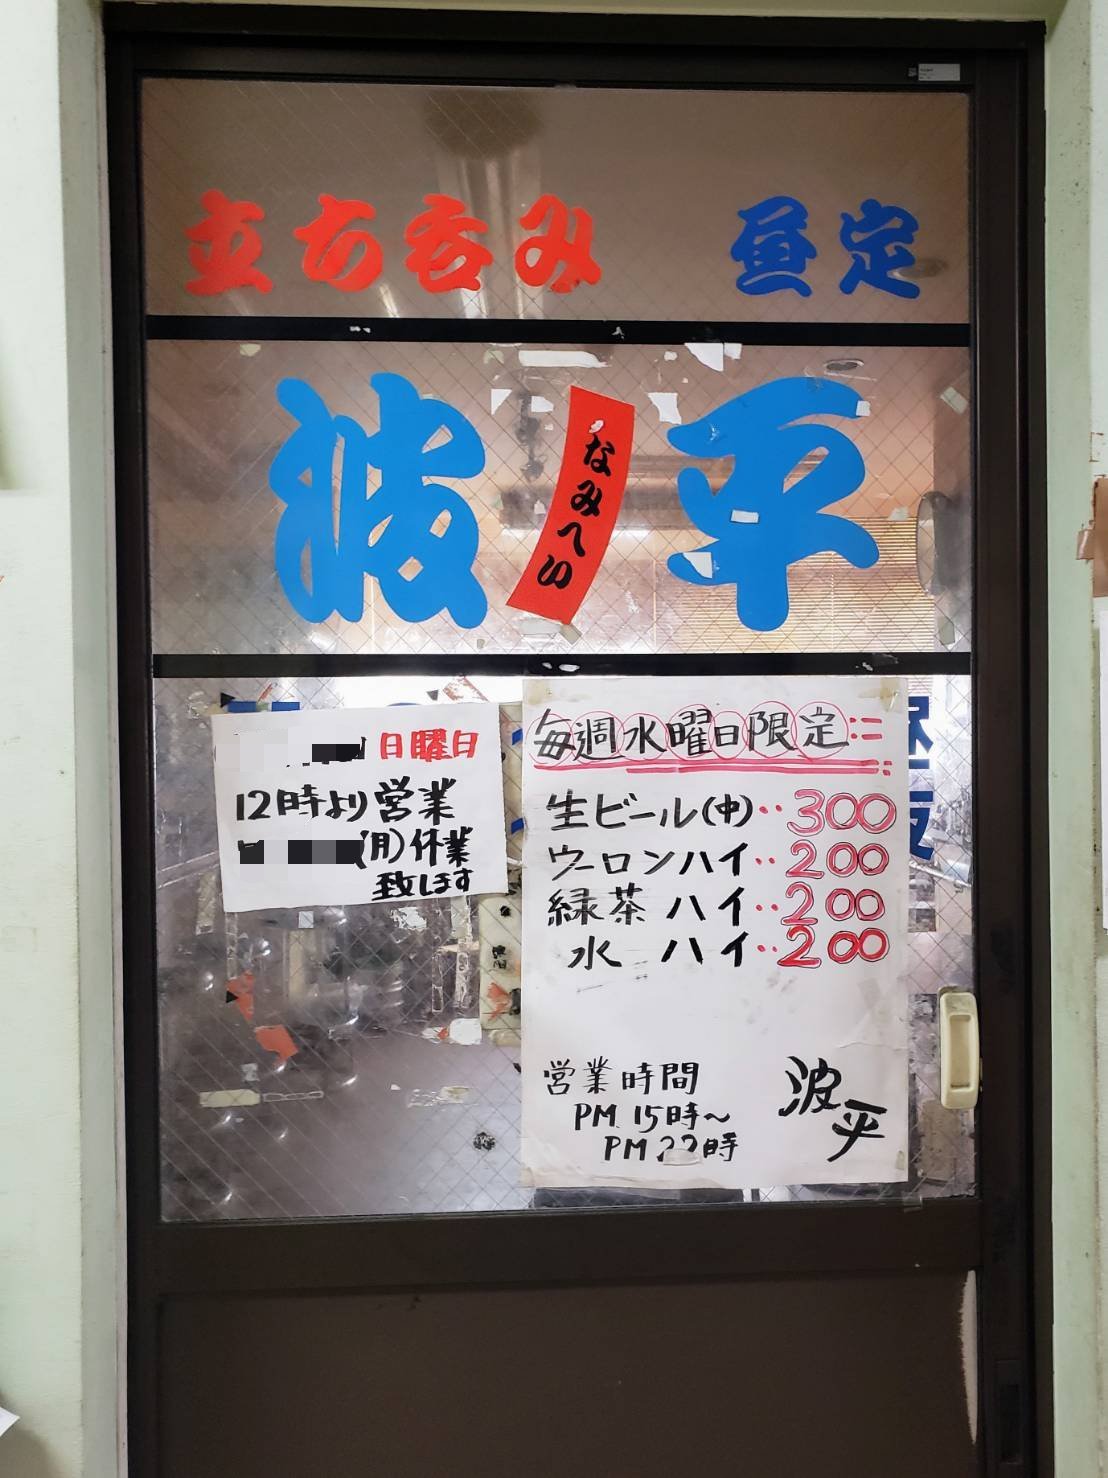 立ち呑み 昼定
波平
なみへい
日曜日
12時より営業
(月)休業
致します
毎週水曜日限定
生ビール(中)‥300
ウーロンハイ‥200
緑茶ハイ‥200
水ハイ‥200
営業時間
PM 15時~
PM 22時
波平